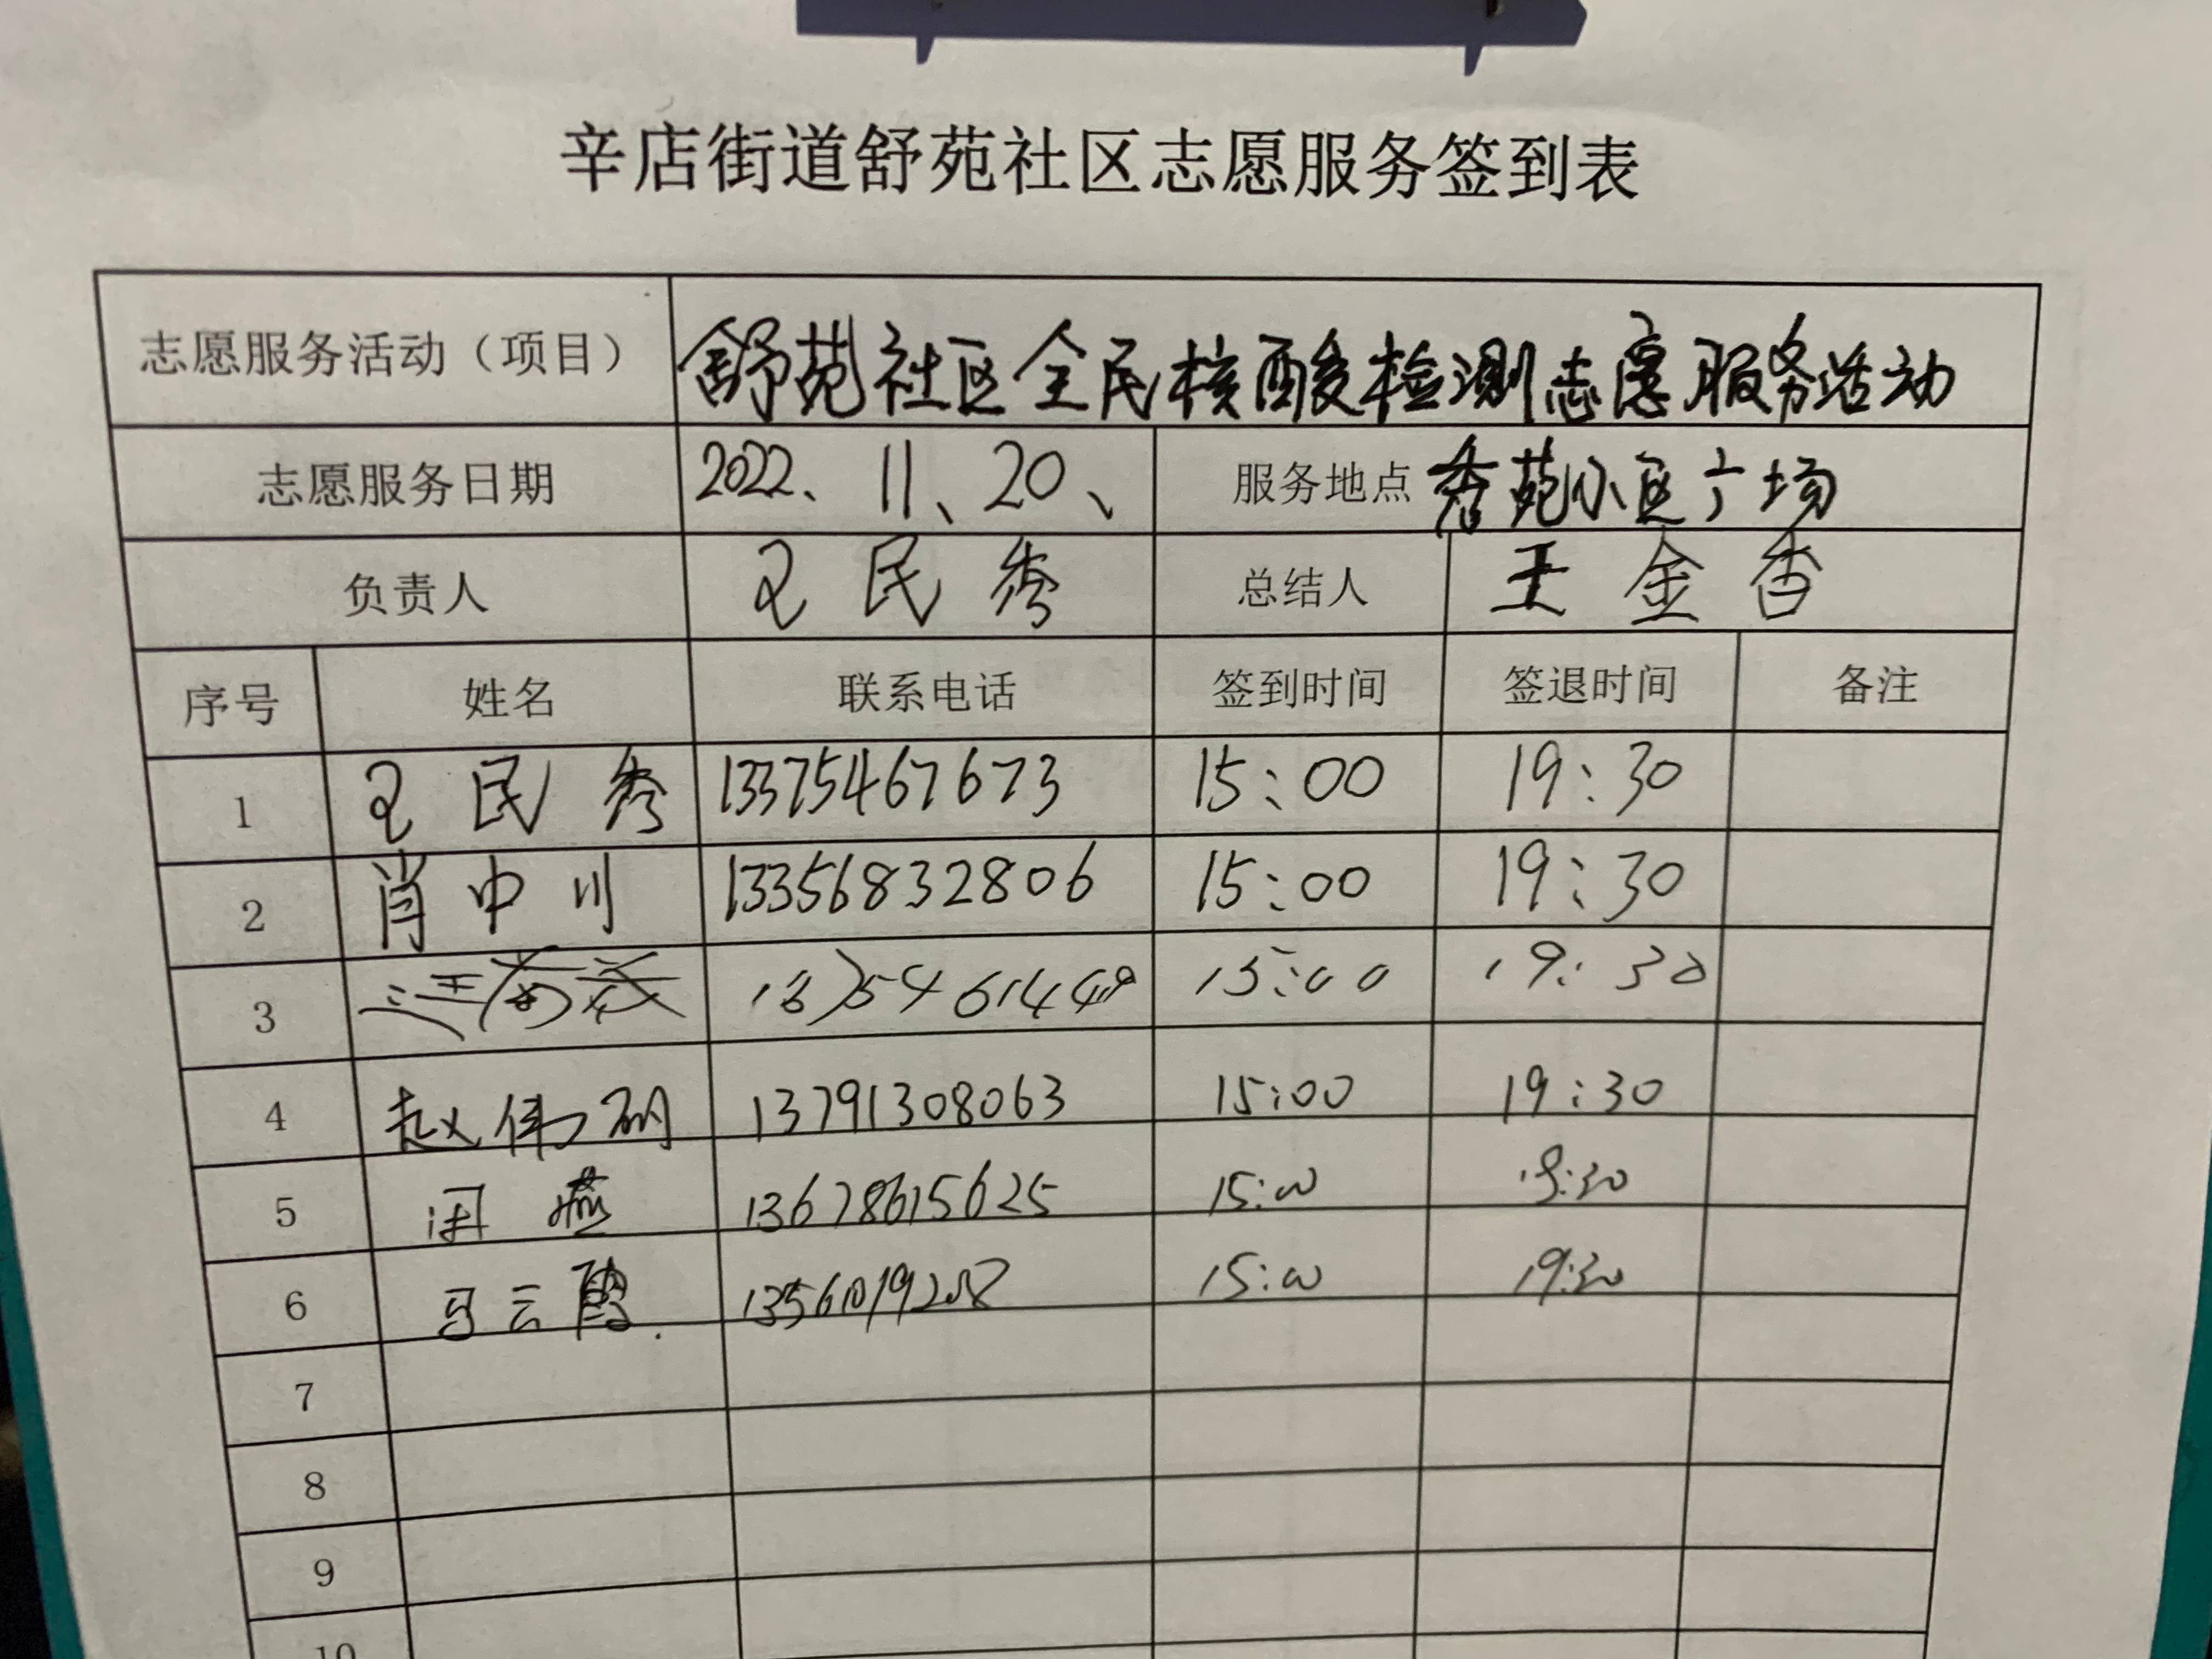 辛店街道舒苑社区志愿服务签到表
志愿服务活动（项目） 舒苑社区全民核酸检测志愿服务活动
志愿服务日期 2022、11、20、 服务地点 秀苑小区广场
负责人 王民秀 总结人 王金香
序号 姓名 联系电话 签到时间 签退时间 备注
1 王民秀 13375467673 15:00 19:30
2 肖中川 13356832806 15:00 19:30
3 15:00 19:30
4 赵伟 13791308063 15:00 19:30
5 燕 13678615625 15:00 19:30
6 马云霞 13561019208 15:00 19:30
7
8
9
10